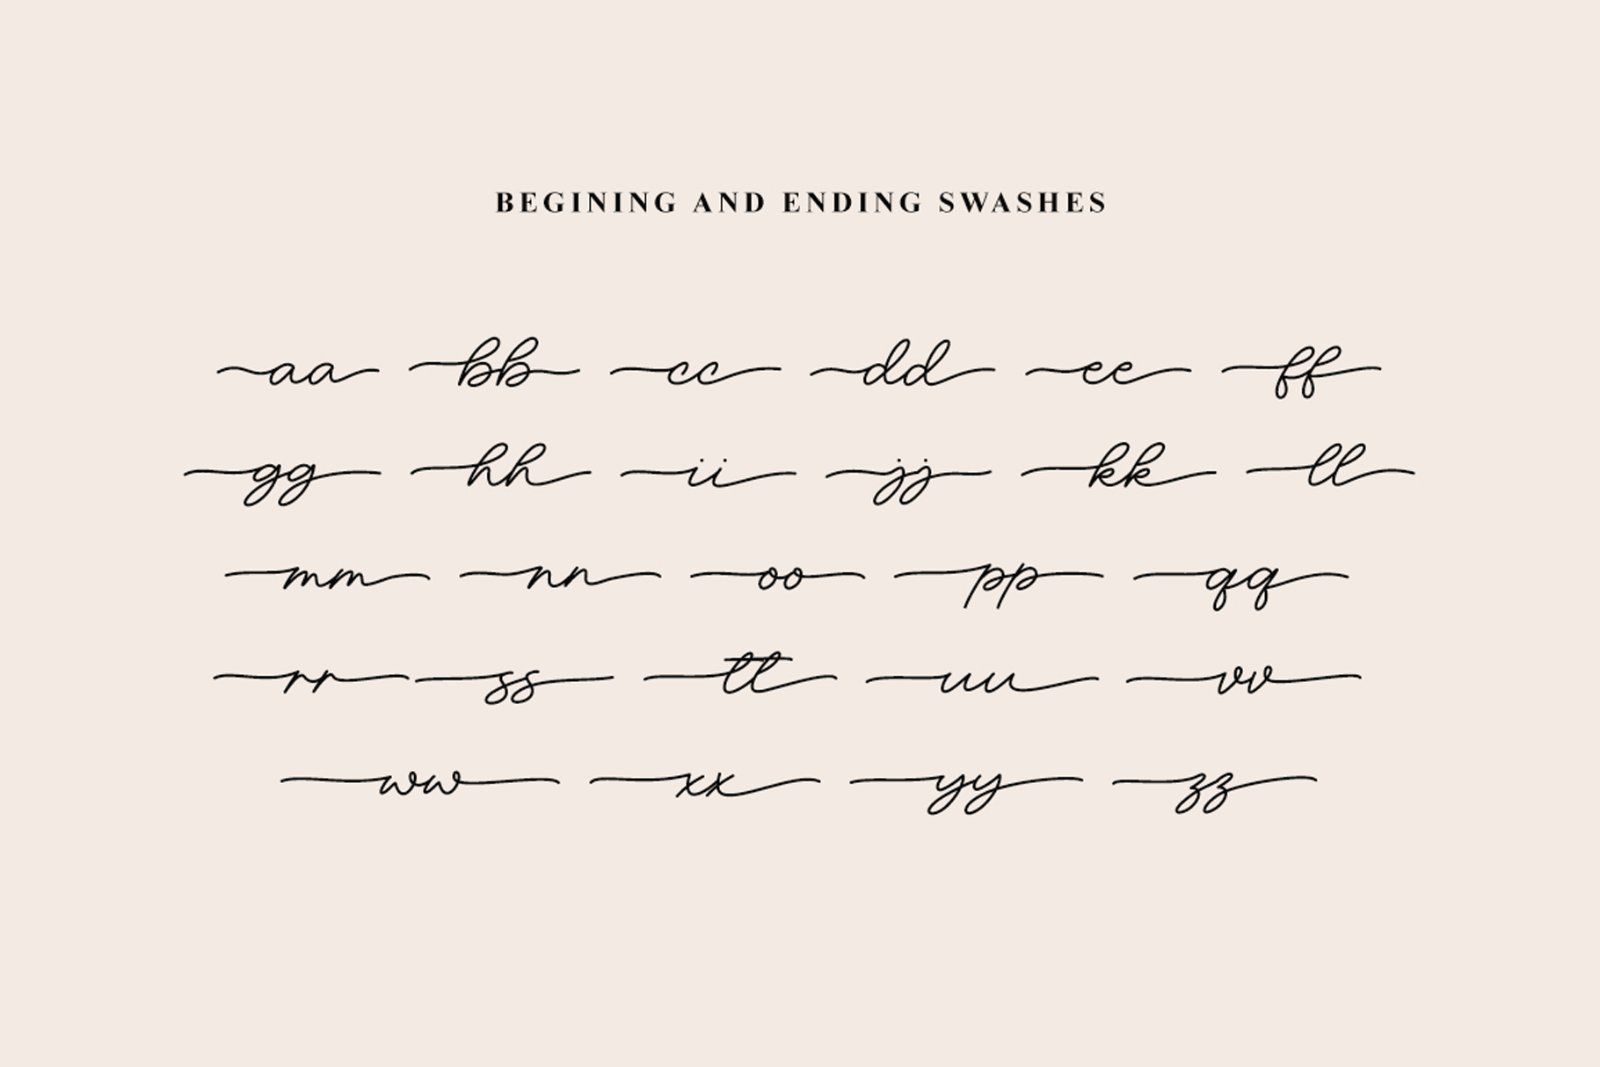 BEGINING AND ENDING SWASHES
aa bb cc dd ee ff
gg hh ii jj kk ll
mm nn oo pp qq
rr ss tt uu vv
ww xx yy zz